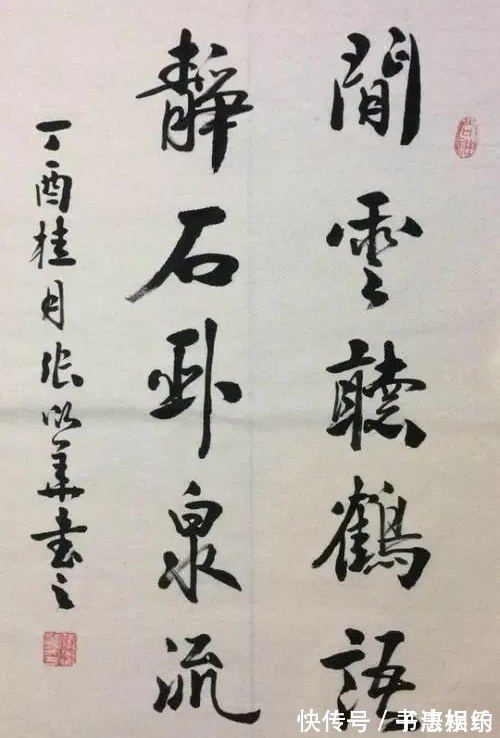 閒雲聽鶴語
靜石卧泉流
丁酉桂月張華書之
快传号 /